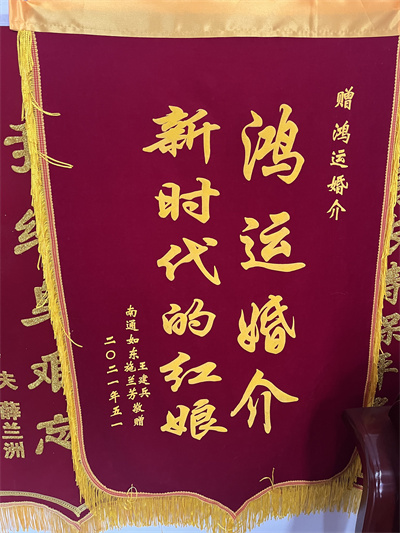 赠鸿运婚介
鸿运婚介
新时代的红娘
王建兵
南通如东施兰芳敬赠
二〇二一年五一
难忘
夫薛兰洲